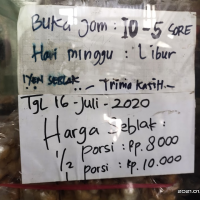 Buka Jam : 10 - 5 SORE
Hari minggu : Libur
IYEN SEBLAK .. - Trima KasiH. -
TgL 16 - Juli - 2020
Harga Seblak :
1 porsi : Rp. 8000
1/2 porsi : Rp. 10.000